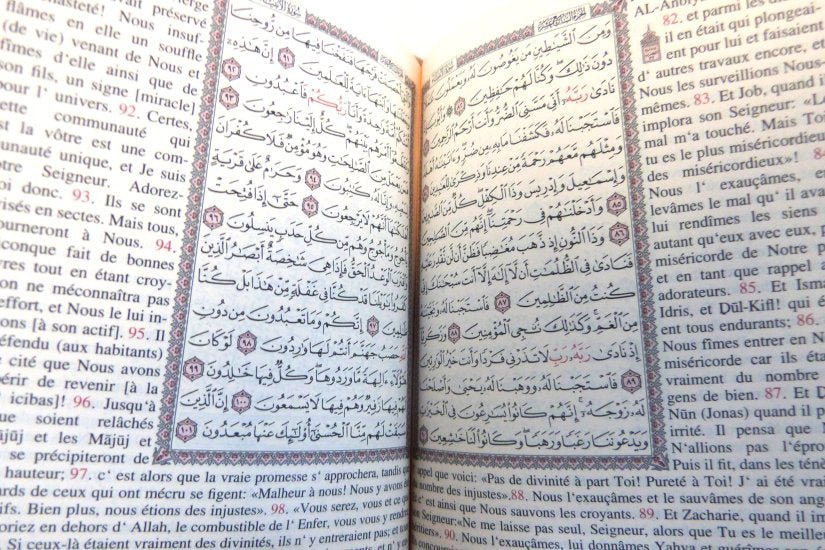 وَمِنَ ٱلشَّيَـٰطِينِ مَن يَغُوصُونَ لَهُۥ وَيَعْمَلُونَ
دُونَ ذَٰلِكَ وَكُنَّا لَهُمْ حَـٰفِظِينَ
نَادَىٰ رَبَّهُۥٓ أَنِّى مَسَّنِىَ ٱلضُّرُّ وَأَنتَ أَرْحَمُ ٱلرَّٰحِمِينَ
فَٱسْتَجَبْنَا لَهُۥ فَكَشَفْنَا مَا بِهِۦ مِن ضُرٍّ وَءَاتَيْنَـٰهُ
وَمِثْلَهُم مَّعَهُمْ رَحْمَةً مِّنْ عِندِنَا وَذِكْرَىٰ لِلْعَـٰبِدِينَ
وَإِسْمَـٰعِيلَ وَإِدْرِيسَ وَذَا ٱلْكِفْلِ كُلٌّ مِّنَ ٱلصَّـٰبِرِينَ
٨٥ وَأَدْخَلْنَـٰهُمْ فِى رَحْمَتِنَآ إِنَّهُم مِّنَ ٱلصَّـٰلِحِينَ
٨٦ وَذَا ٱلنُّونِ إِذ ذَّهَبَ مُغَـٰضِبًا فَظَنَّ أَن لَّن نَّقْدِرَ
فَنَادَىٰ فِى ٱلظُّلُمَـٰتِ أَن لَّآ إِلَـٰهَ إِلَّآ أَنتَ سُبْحَـٰنَكَ
كُنتُ مِنَ ٱلظَّـٰلِمِينَ ٨٧ فَٱسْتَجَبْنَا لَهُۥ
مِنَ ٱلْغَمِّ وَكَذَٰلِكَ نُـۨجِى ٱلْمُؤْمِنِينَ ٨٨ وَزَكَرِيَّآ
إِذْ نَادَىٰ رَبَّهُۥ رَبِّ لَا تَذَرْنِى فَرْدًا وَأَنتَ خَيْرُ ٱلْوَٰرِثِينَ
٨٩ فَٱسْتَجَبْنَا لَهُۥ وَوَهَبْنَا لَهُۥ يَحْيَىٰ وَأَصْلَحْنَا
لَهُۥ زَوْجَهُۥٓ إِنَّهُمْ كَانُوا۟ يُسَـٰرِعُونَ فِى ٱلْخَيْرَٰتِ
وَيَدْعُونَنَا رَغَبًا وَرَهَبًا وَكَانُوا۟ لَنَا خَـٰشِعِينَ
82. et parmi les dia
il en était qui plongeai-
ent pour lui et faisaient
d' autres travaux encore, et
Nous les surveillions Nous-
mêmes. 83. Et Job, quand i
implora son Seigneur: «Le
mal m'a touché. Mais Toi
tu es le plus miséricordieux
des miséricordieux»! 84
Nous l' exauçâmes, en
levâmes le mal qu' il ava
lui rendîmes les siens
autant qu'eux avec eux, p
miséricorde de Notre p
et en tant que rappel a
adorateurs. 85. Et Isma
Idris, et Dūl-Kifl! qui é
ent tous endurants; 86.
Nous fîmes entrer en N
miséricorde car ils éta
vraiment du nombre
gens de bien. 87. Et D
Nūn (Jonas) quand il p
irrité. Il pensa que N
N'allions pas l'épro
Puis il fit, dans les ténè
appel que voici: «Pas de divinité à part Toi! Pureté à Toi! J' ai été vrai
nombre des injustes».88. Nous l'exauçâmes et le sauvâmes de son ang
c' et ainsi que Nous sauvons les croyants. 89. Et Zacharie, quand il im
Seigneur:«Ne me laisse pas seul, Seigneur, alors que Tu es le meille
90. Nous l'exauçâmes, lui donnâmes Yahya et guérîmes
فَنَفَخْنَا فِيهَا مِن رُّوحِنَا
وَٱبْنَهَآ ءَايَةً لِّلْعَـٰلَمِينَ ٩١ إِنَّ هَـٰذِهِۦٓ
وَأَنَا۠ رَبُّكُمْ فَٱعْبُدُونِ ٩٢
كُلٌّ إِلَيْنَا رَٰجِعُونَ ٩٣
يَعْمَلْ مِنَ ٱلصَّـٰلِحَـٰتِ وَهُوَ مُؤْمِنٌ فَلَا كُفْرَانَ
كَـٰتِبُونَ ٩٤ وَحَرَٰمٌ عَلَىٰ قَرْيَةٍ
أَنَّهُمْ لَا يَرْجِعُونَ ٩٥ حَتَّىٰٓ إِذَا فُتِحَتْ
وَمَأْجُوجُ وَهُم مِّن كُلِّ حَدَبٍ يَنسِلُونَ ٩٦
ٱلْوَعْدُ ٱلْحَقُّ فَإِذَا هِىَ شَـٰخِصَةٌ أَبْصَـٰرُ ٱلَّذِينَ
قَدْ كُنَّا فِى غَفْلَةٍ مِّنْ هَـٰذَا بَلْ كُنَّا
٩٧ إِنَّكُمْ وَمَا تَعْبُدُونَ مِن دُونِ
حَصَبُ جَهَنَّمَ أَنتُمْ لَهَا وَٰرِدُونَ ٩٨ لَوْ كَانَ
ءَالِهَةً مَّا وَرَدُوهَا وَكُلٌّ فِيهَا خَـٰلِدُونَ ٩٩
فِيهَا زَفِيرٌ وَهُمْ فِيهَا لَا يَسْمَعُونَ ١٠٠ إِنَّ ٱلَّذِينَ
سَبَقَتْ لَهُم مِّنَّا ٱلْحُسْنَىٰٓ أُو۟لَـٰٓئِكَ عَنْهَا مُبْعَدُونَ ١٠١
avait préservé
hasteté! Nous insuf-
flâmes en elle un souffle
(de vie) venant de Nous et
fîmes d'elle ainsi de
son fils, un signe [miracle]
pour l' univers. 92. Certes,
ette communauté qui
st la vôtre est une com-
munauté unique, et Je suis
otre Seigneur. Adorez-
oi donc. 93. Ils se sont
risés en sectes. Mais tous,
ourneront à Nous. 94.
iconque fait de bonnes
vres tout en étant croy-
on ne méconnaîtra pas
effort, et Nous le lui in-
ons [à son actif]. 95. Il
défendu (aux habitants)
cité que Nous avons
périr de revenir [à la
icibas]! 96. Jusqu'à
que soient relâchés
ājūj et les Mājūj et
se précipiteront de
hauteur; 97. c' est alors que la vraie promesse s' approchera, tandis
ards de ceux qui ont mécru se figent: «Malheur à nous! Nous y avons
ifs. Bien plus, nous étions des injustes». 98. «Vous serez, vous et ce
oriez en dehors d' Allah, le combustible de l' Enfer, vous vous y rendre
Si ceux-là étaient vraiment des divinités, ils n' y entreraient pas; et tous